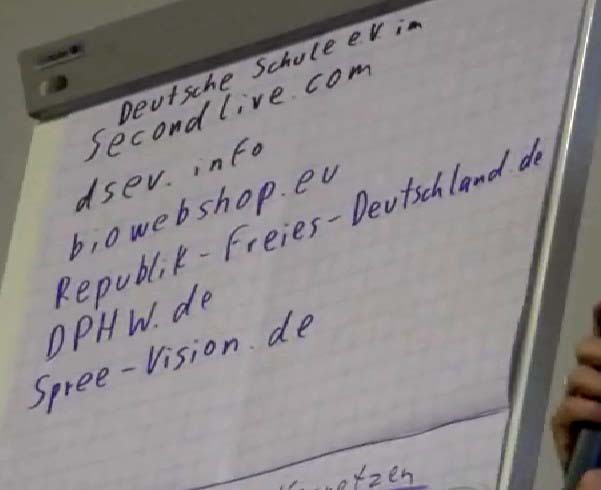 Deutsche Schule ev im
Secondlive.com
dsev.info
biowebshop.eu
Republik-Freies-Deutschland.de
DPHW.de
Spree-Vision.de